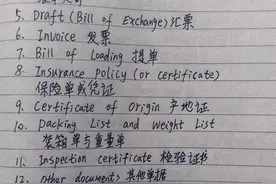 5. Draft (Bill of Exchange) 汇票
6. Invoice 发票
7. Bill of Loading 提单
8. Insurance Policy (or certificate)
保险单或凭证
9. Certificate of Origin 产地证
10. Packing List and Weight List
装箱单与重量单
11. Inspection certificate 检验证书
12. Other documents 其他单据